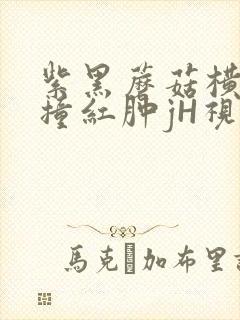 紫黑蘑菇横
撞紅肿jH視
馬克 加布里